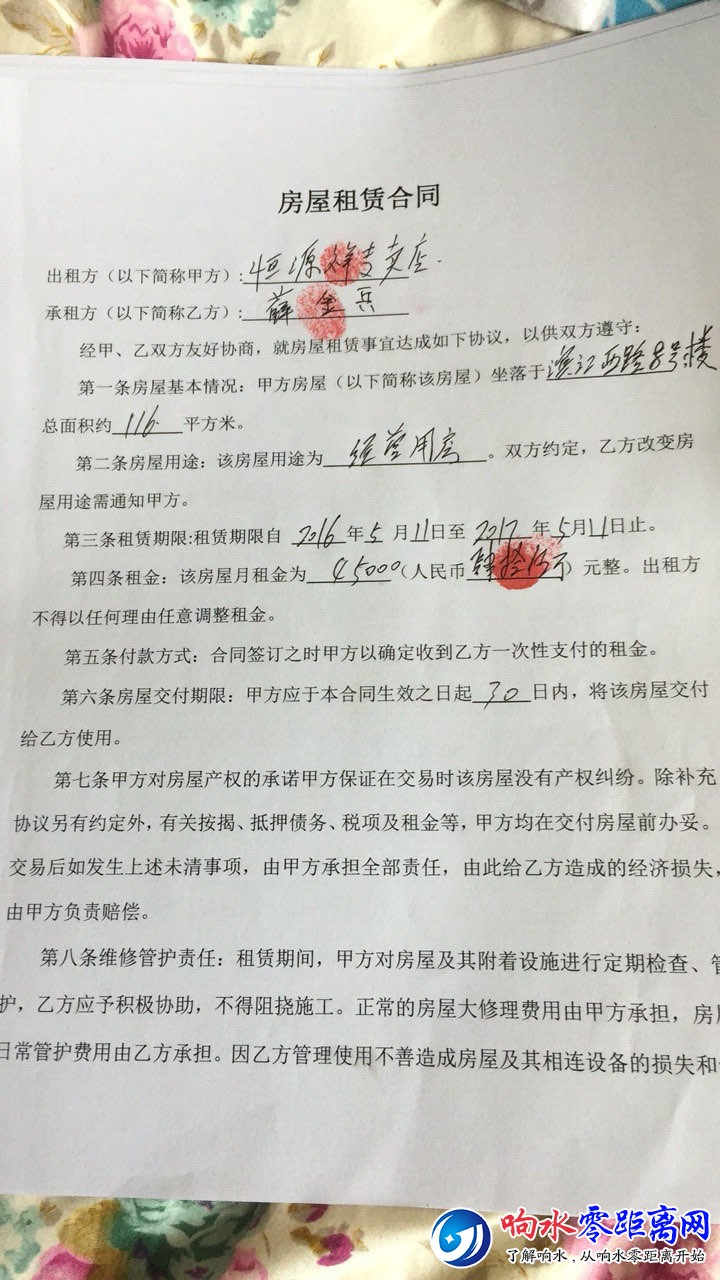 房屋租赁合同
出租方（以下简称甲方）：恒源祥专卖店
承租方（以下简称乙方）：薛金兵
经甲、乙双方友好协商，就房屋租赁事宜达成如下协议，以供双方遵守：
第一条房屋基本情况：甲方房屋（以下简称该房屋）坐落于江西路8号楼
总面积约 116 平方米。
第二条房屋用途：该房屋用途为 经营用房 。双方约定，乙方改变房
屋用途需通知甲方。
第三条租赁期限:租赁期限自 2016 年 5 月 11日至 2017 年 5月11日止。
第四条租金：该房屋月租金为 45000（人民币肆拾伍万）元整。出租方
不得以任何理由任意调整租金。
第五条付款方式：合同签订之时甲方以确定收到乙方一次性支付的租金。
第六条房屋交付期限：甲方应于本合同生效之日起 30 日内，将该房屋交付
给乙方使用。
第七条甲方对房屋产权的承诺甲方保证在交易时该房屋没有产权纠纷。除补充
协议另有约定外，有关按揭、抵押债务、税项及租金等，甲方均在交付房屋前办妥。
交易后如发生上述未清事项，由甲方承担全部责任，由此给乙方造成的经济损失，
由甲方负责赔偿。
第八条维修管护责任：租赁期间，甲方对房屋及其附着设施进行定期检查、管
护，乙方应予积极协助，不得阻挠施工。正常的房屋大修理费用由甲方承担，房
日常管护费用由乙方承担。因乙方管理使用不善造成房屋及其相连设备的损失和
响水零距离网
了解响水，从响水零距离开始